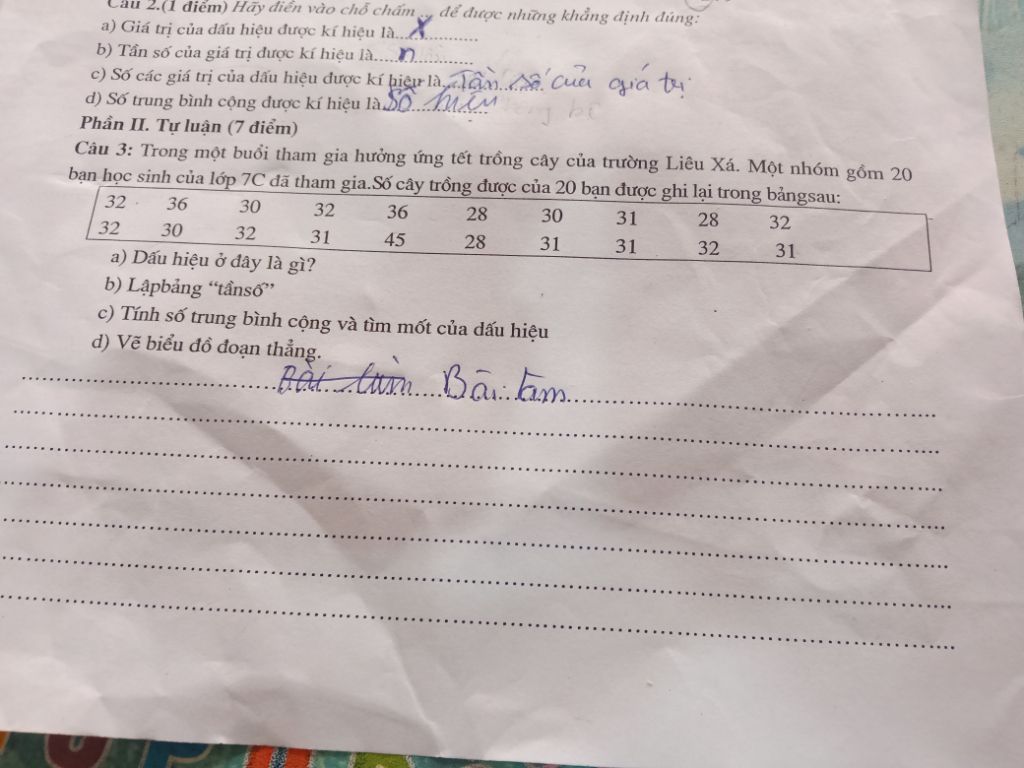 Câu 2.(1 điểm) Hãy điền vào chỗ chấm ... để được những khẳng định đúng:
a) Giá trị của dấu hiệu được kí hiệu là...X..............
b) Tần số của giá trị được kí hiệu là....n..............
c) Số các giá trị của dấu hiệu được kí hiệu là..Tần số của giá trị
d) Số trung bình cộng được kí hiệu là.Số hiệu
Phần II. Tự luận (7 điểm)
Câu 3: Trong một buổi tham gia hưởng ứng tết trồng cây của trường Liêu Xá. Một nhóm gồm 20
bạn học sinh của lớp 7C đã tham gia.Số cây trồng được của 20 bạn được ghi lại trong bảngsau:
32 36 30 32 36 28 30 31 28 32
32 30 32 31 45 28 31 31 32 31
a) Dấu hiệu ở đây là gì?
b) Lậpbảng “tầnsố”
c) Tính số trung bình cộng và tìm mốt của dấu hiệu
d) Vẽ biểu đồ đoạn thẳng.
Bài làm